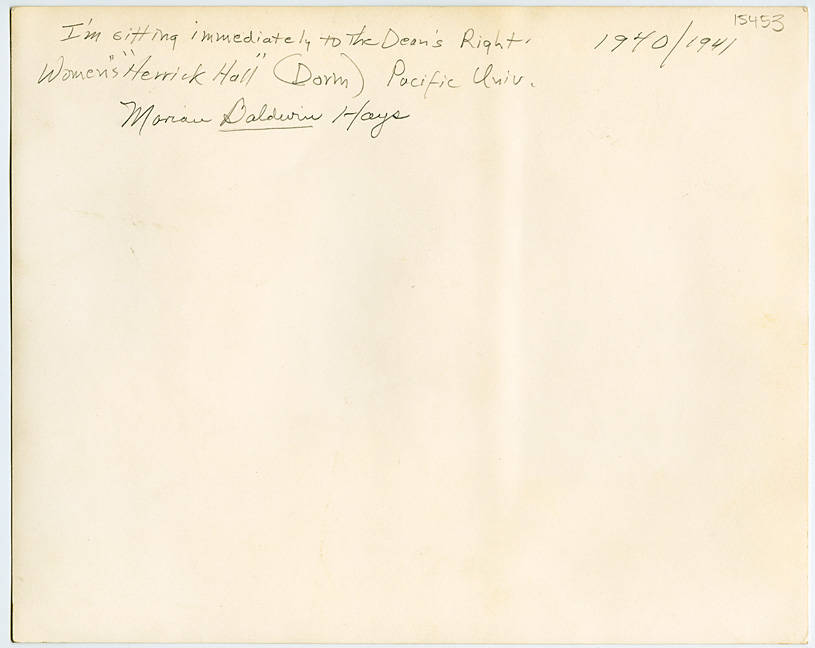 15453
I'm sitting immediately to the Dean's Right. 1940/1941
Women's "Herrick Hall" (Dorm) Pacific Univ.
Marian Baldwin Hays